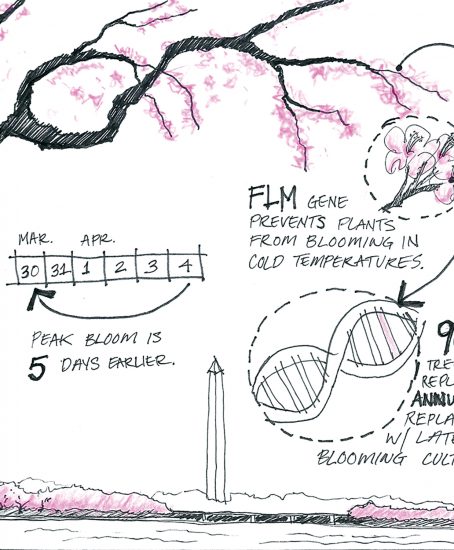 FLM GENE
PREVENTS PLANTS
FROM BLOOMING IN
COLD TEMPERATURES.
MAR. APR.
30 31 1 2 3 4
PEAK BLOOM IS
5 DAYS EARLIER.
W/
BLOOMING